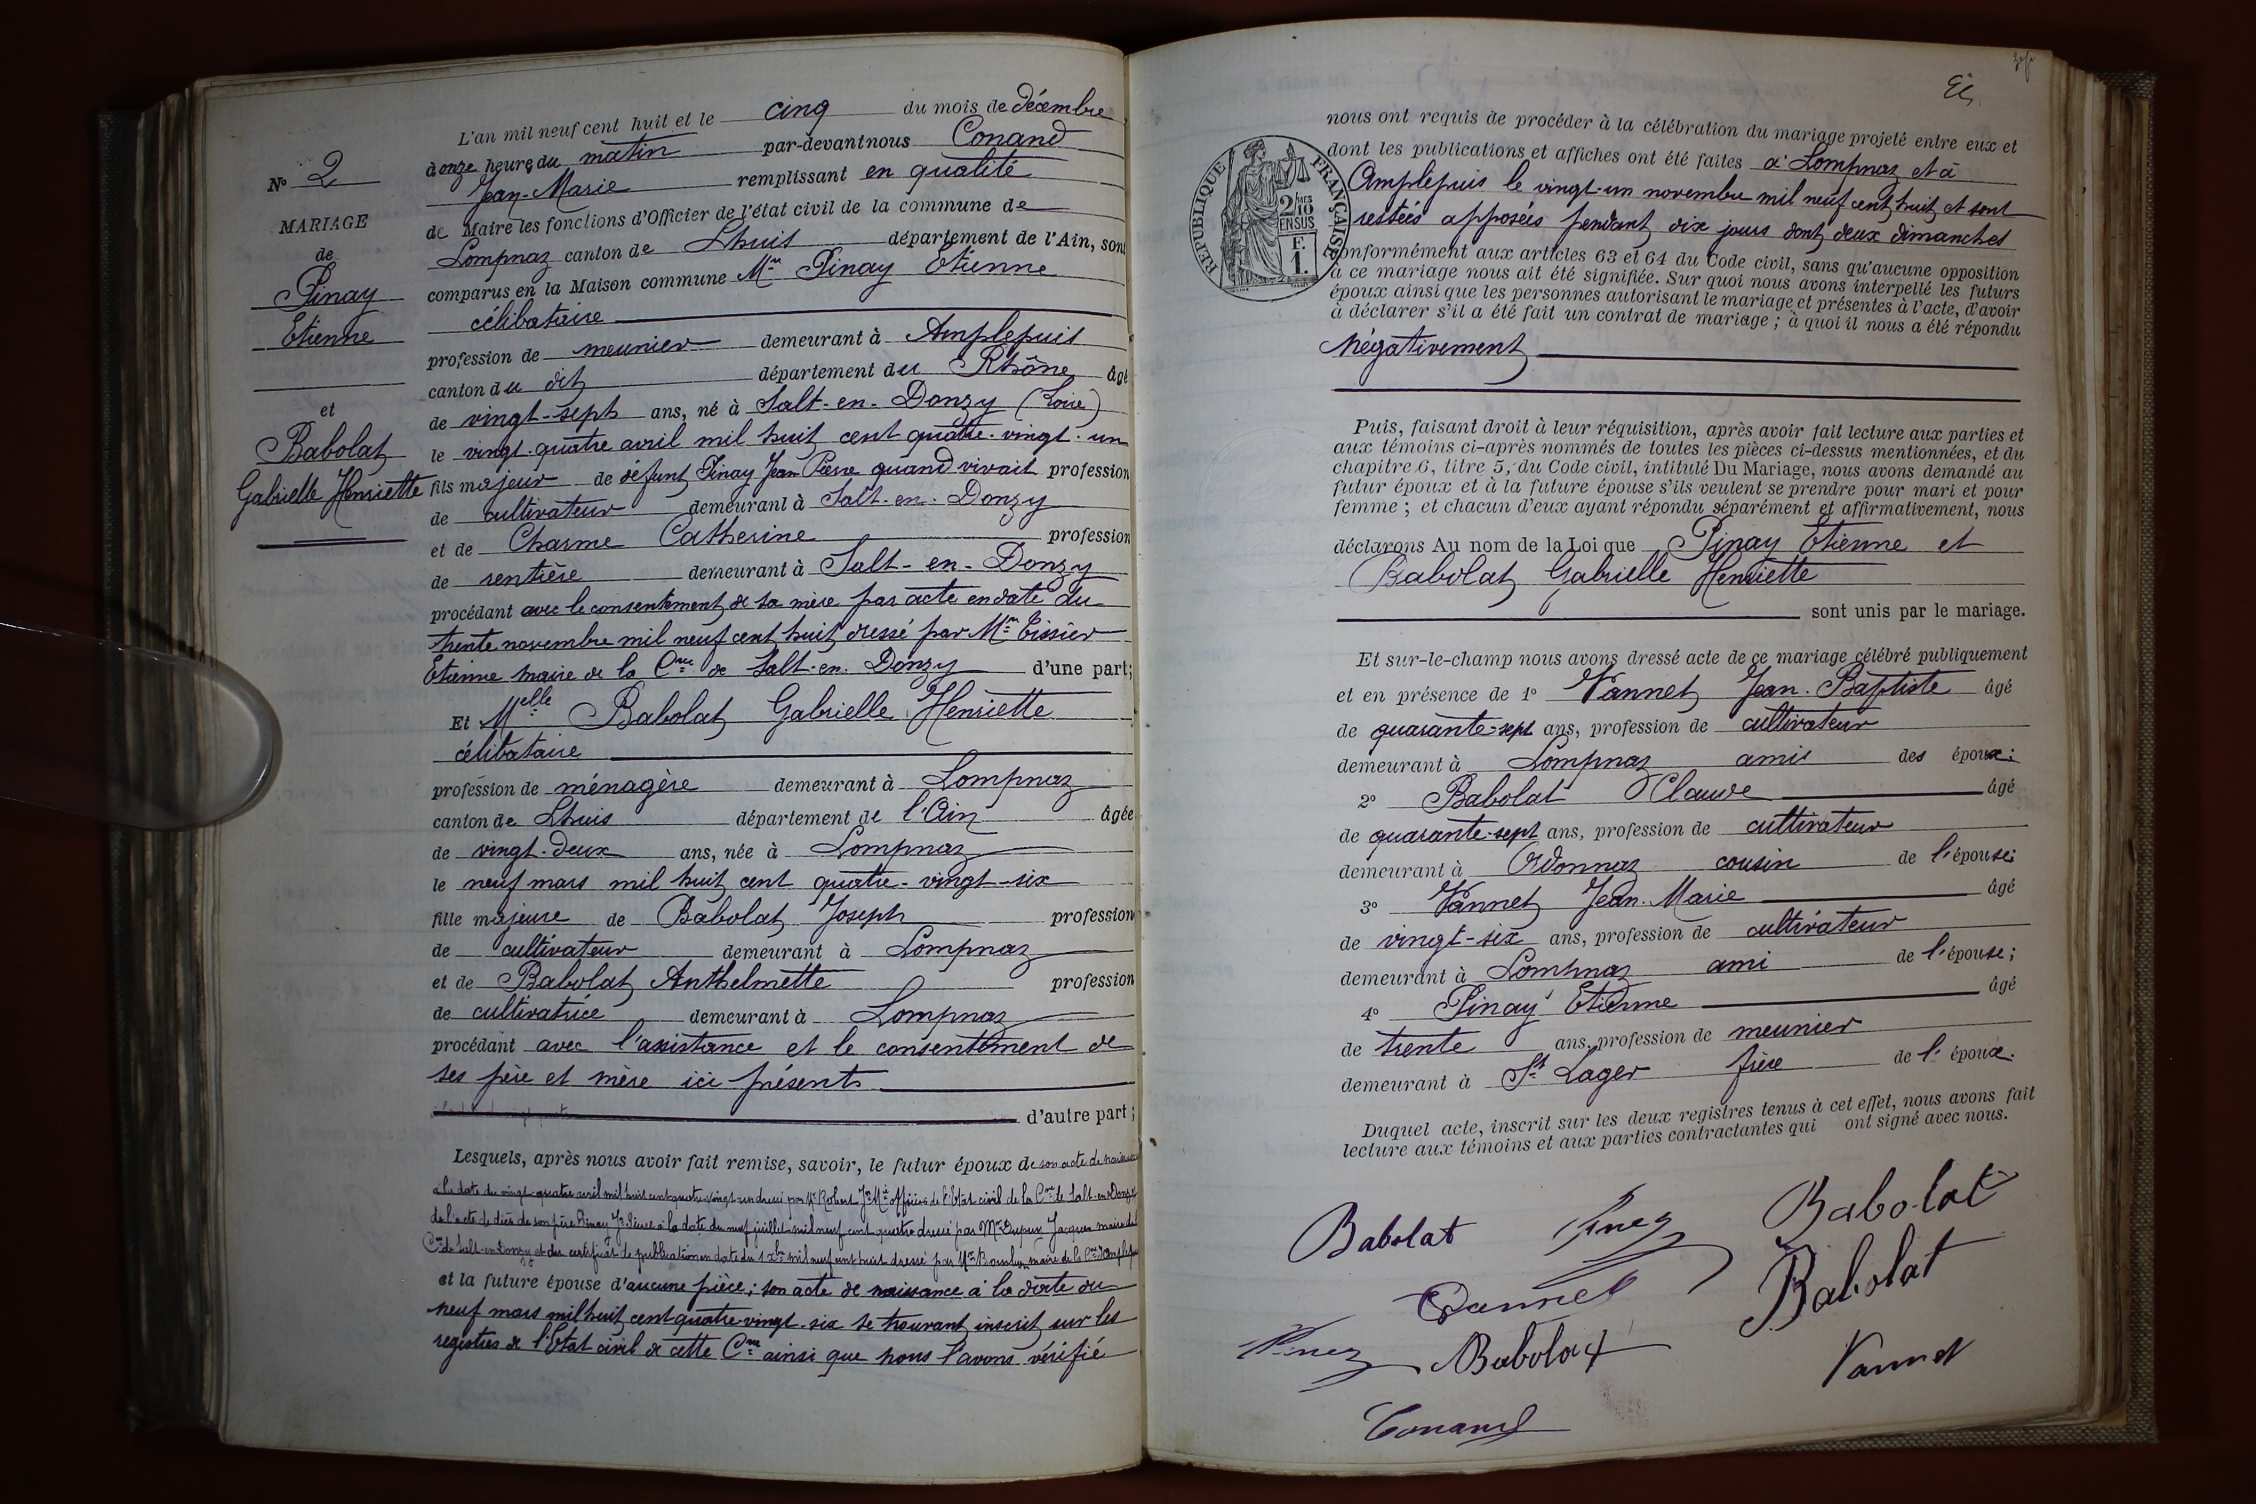 N° 2
MARIAGE
de
Pinay
Etienne
et
Babolat
Gabrielle Henriette
L'an mil neuf cent huit et le cinq du mois de décembre
à onze heures du matin par-devant nous Conand
Jean-Marie remplissant en qualité
de Maire les fonctions d'Officier de l'état civil de la commune de
Lompnaz canton de Lhuis département de l'Ain, sont
comparus en la Maison commune Mr Pinay Etienne
célibataire
profession de meunier demeurant à Amplepuis
canton du dit département du Rhône âgé
de vingt-sept ans, né à Salt-en-Donzy (Loire)
le vingt-quatre avril mil huit cent quatre-vingt-un
fils majeur de défunt Pinay Jean Pierre quand vivait profession
de cultivateur demeurant à Salt-en-Donzy
et de Charme Catherine profession
de rentière demeurant à Salt-en-Donzy
procédant avec le consentement de sa mère par acte en date du
trente novembre mil neuf cent huit dressé par Mr Tissier
Etienne maire de la Cne de Salt-en-Donzy d'une part;
Et Melle Babolat Gabrielle Henriette
célibataire
profession de ménagère demeurant à Lompnaz
canton de Lhuis département de l'Ain âgée
de vingt-deux ans, née à Lompnaz
le neuf mars mil huit cent quatre-vingt-six
fille majeure de Babolat Joseph profession
de cultivateur demeurant à Lompnaz
et de Babolat Anthelmette profession
de cultivatrice demeurant à Lompnaz
procédant avec l'assistance et le consentement de
ses père et mère ici présents
d'autre part;
Lesquels, après nous avoir fait remise, savoir, le futur époux de son acte de naissance
à la date du vingt-quatre avril mil huit cent quatre-vingt-un dressé par Mr Robert Jn Mie officier de l'Etat civil de la Cne de Salt-en-Donzy
de l'acte de décès de son père Pinay Jn Pierre à la date du neuf juillet mil neuf cent quatre dressé par Mr Dupuy Jacques maire de la
Cne de Salt-en-Donzy et du certificat de publication en date du 1 Xbre mil neuf cent huit dressé par Mr maire de la Cne d'Amplepuis
et la future épouse d'aucune pièce; son acte de naissance à la date du
neuf mars mil huit cent quatre-vingt-six se trouvant inscrit sur les
registres de l'Etat civil de cette Cne ainsi que nous l'avons vérifié
REPUBLIQUE FRANÇAISE
2/10 EN SUS
F.
1.
nous ont requis de procéder à la célébration du mariage projeté entre eux et
dont les publications et affiches ont été faites à Lompnaz et à
Amplepuis le vingt-un novembre mil neuf cent huit et sont
restées apposées pendant dix jours dont deux dimanches
conformément aux articles 63 et 64 du Code civil, sans qu'aucune opposition
à ce mariage nous ait été signifiée. Sur quoi nous avons interpellé les futurs
époux ainsi que les personnes autorisant le mariage et présentes à l'acte, d'avoir
à déclarer s'il a été fait un contrat de mariage; à quoi il nous a été répondu
négativement
Puis, faisant droit à leur réquisition, après avoir fait lecture aux parties et
aux témoins ci-après nommés de toutes les pièces ci-dessus mentionnées, et du
chapitre 6, titre 5, du Code civil, intitulé Du Mariage, nous avons demandé au
futur époux et à la future épouse s'ils veulent se prendre pour mari et pour
femme; et chacun d'eux ayant répondu séparément et affirmativement, nous
déclarons Au nom de la Loi que Pinay Etienne et
Babolat Gabrielle Henriette
sont unis par le mariage.
Et sur-le-champ nous avons dressé acte de ce mariage célébré publiquement
et en présence de 1° Vannet Jean-Baptiste âgé
de quarante-sept ans, profession de cultivateur
demeurant à Lompnaz amis des époux;
2° Babolat Claude âgé
de quarante-sept ans, profession de cultivateur
demeurant à Ordonnaz cousin de l'épouse;
3° Vannet Jean-Marie âgé
de vingt-six ans, profession de cultivateur
demeurant à Lompnaz ami de l'épouse;
4° Pinay Etienne âgé
de trente ans, profession de meunier
demeurant à St Lager frère de l'époux.
Duquel acte, inscrit sur les deux registres tenus à cet effet, nous avons fait
lecture aux témoins et aux parties contractantes qui ont signé avec nous.
Babolat Pinay Babolat
Vannet Babolat
Pinay Babolat Vannet
Conand